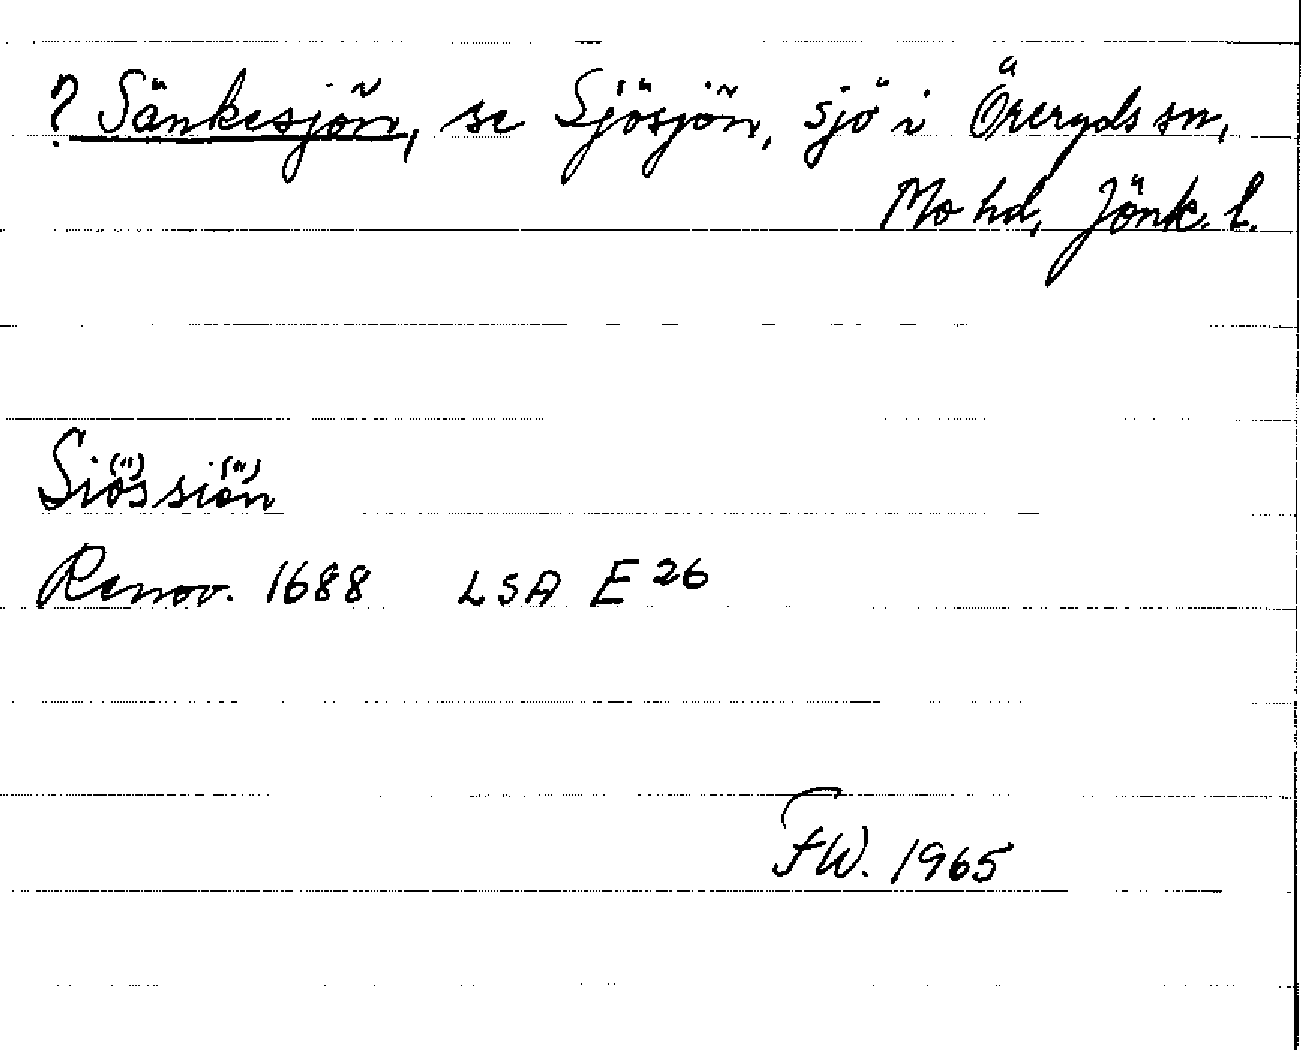 ? Sänkesjön, se Sjösjön, sjö i Öreryds sn,
Mo hd, Jönk. l.
Siössiön
Renov. 1688 LSA E 26
FW. 1965